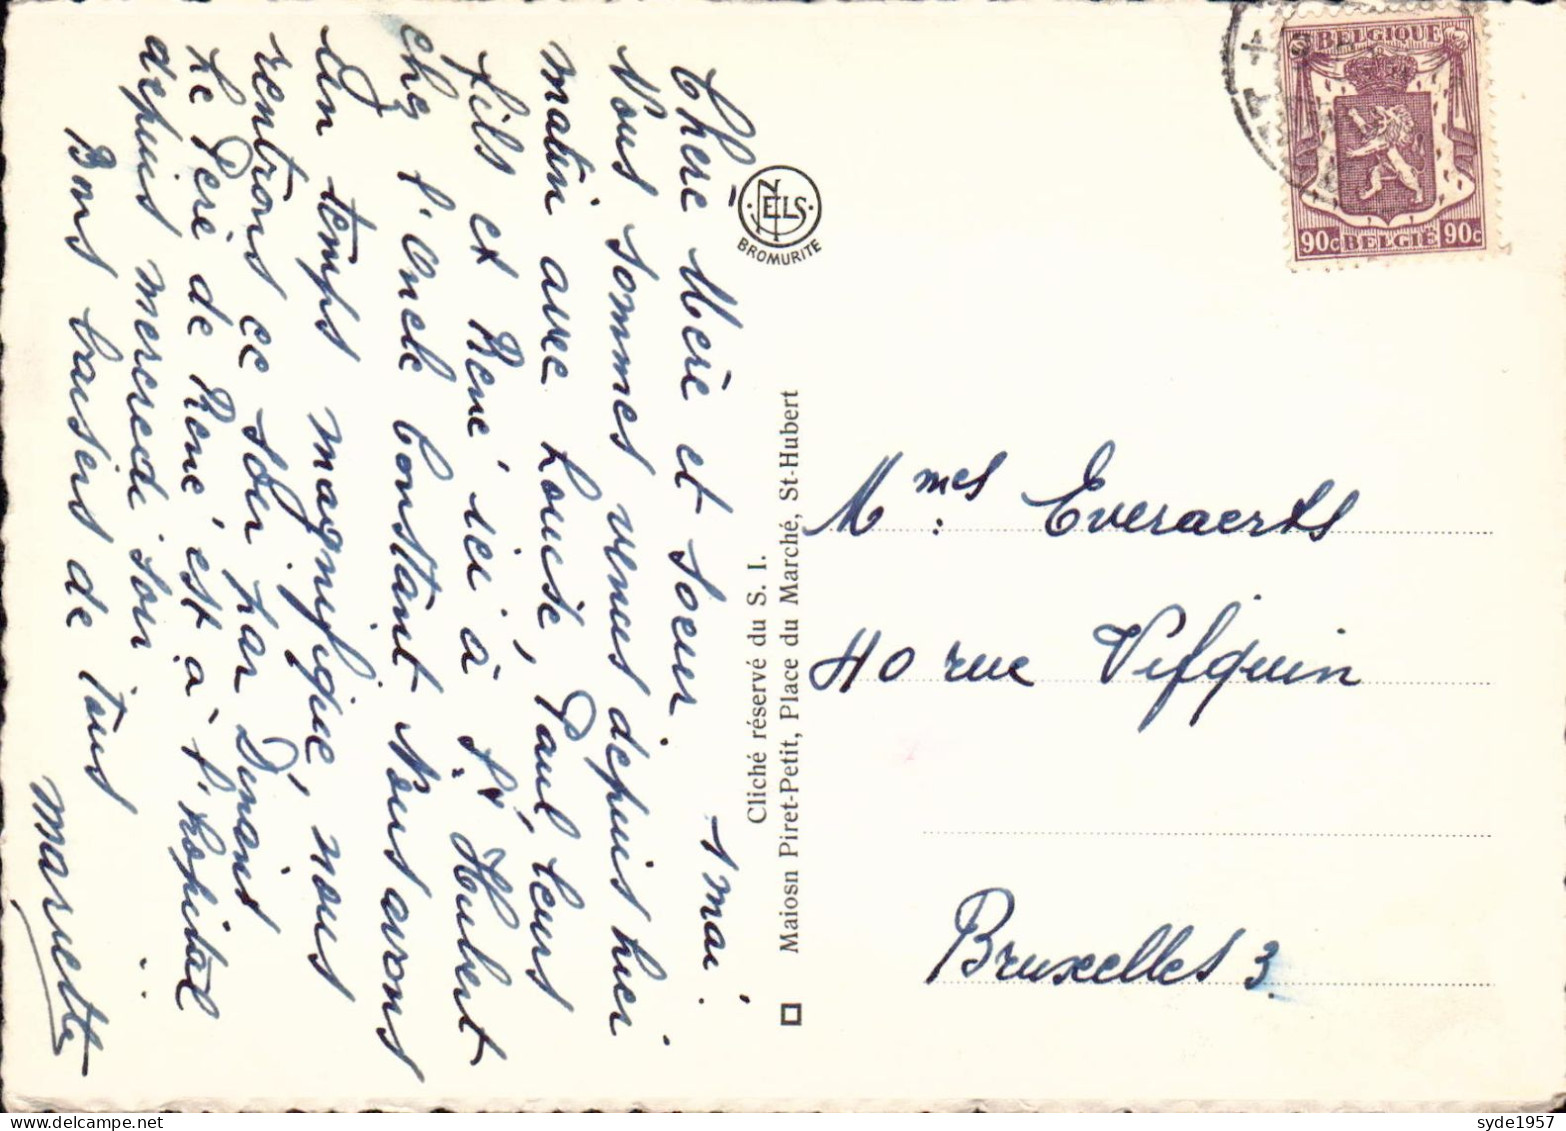 1 mai.
Chère Mère et soeur
Nous sommes venus depuis hier
matin avec Louise, Paul leurs
fils et René ici à St. Hubert
chez l'Oncle Constant Nous avons
un temps magnifique, nous
rentrons ce soir par Dinant
Le Père de René est à l'hopital
depuis mercredi soir.
Bons baisers de tous
Mariette
NELS
BROMURITE
Cliché réservé du S. I.
Maiosn Piret-Petit, Place du Marché, St-Hubert
BELGIQUE
90c BELGIË 90c
Mmes Everaerts
40 rue Vifquin
Bruxelles 3.
syde1957